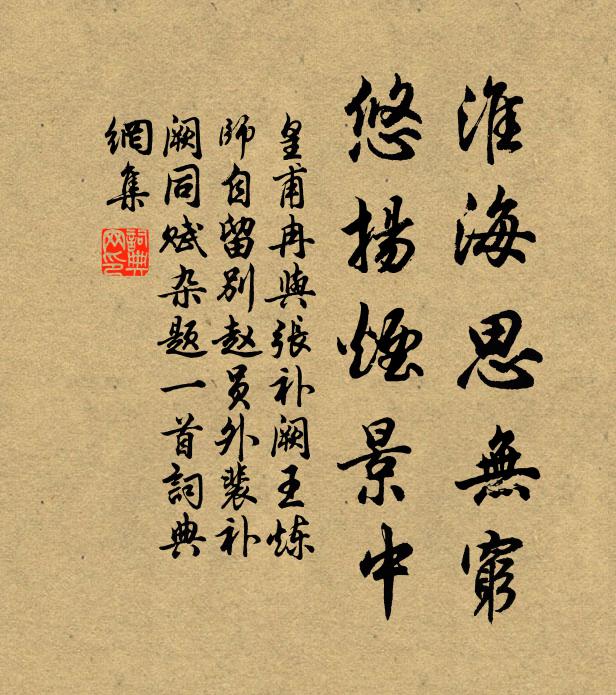 淮海思無窮
悠揚煙景中
皇甫冉與張补阙王炼
师自留别赵员外裴补
阙同赋杂题一首詞典
網集
詞典網印